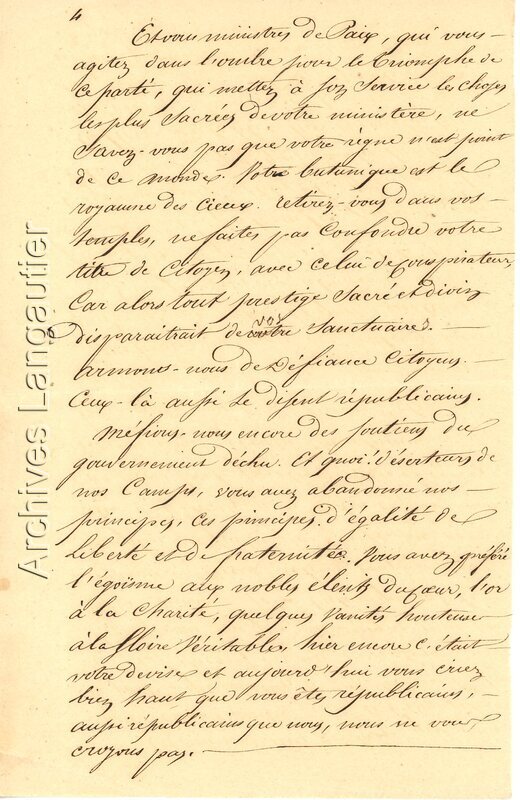 4
Et vous ministres de Paix, qui vous
agitez dans l'ombre pour le triomphe de
ce parté, qui mettez à son service les choses
les plus sacrées de votre ministère, ne
savez-vous pas que votre règne n'est point
de ce monde. Votre but unique est le
royaume des cieux. retirez-vous dans vos
temples, ne faites pas confondre votre
titre de Citoyen, avec celui de conspirateur,
Car alors tout prestige Sacré et divin
disparaitrait de vos Sanctuaires. —
armons-nous de Défiance Citoyens. —
Ceux-là aussi se disent républicains.
Méfions-nous encore des soutiens du
gouvernement déchu. Et quoi! déserteurs de
nos Camps, vous avez abandonné nos —
principes, ces principes d'égalité de
Liberté et de fraternitée. Vous avez préféré
l'égoïsme aux nobles élents du cœur, l'or
à la Charité, quelques vanités honteuses
à la Gloire Véritable, hier encore c'était
votre devise et aujourd'hui vous criez
bien haut que vous êtes républicains, —
aussi républicains que nous, nous ne vous
croyons pas. —
Archives Langautier